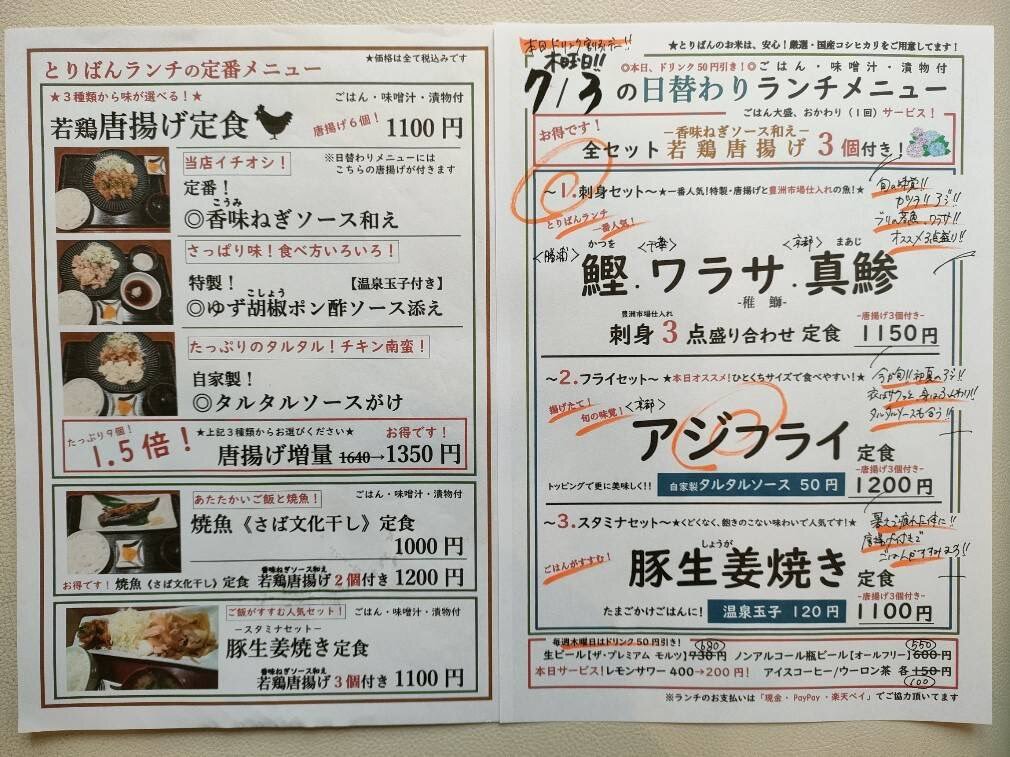 とりばんランチの定番メニュー
★価格は全て税込みです
★3種類から味が選べる!★
ごはん・味噌汁・漬物付
若鶏唐揚げ定食
唐揚げ6個!
1100円
当店イチオシ!
※日替わりメニューには
こちらの唐揚げが付きます
定番!
こうみ
◎香味ねぎソース和え
さっぱり味!食べ方いろいろ!
特製!
【温泉玉子付き】
こしょう
◎ゆず胡椒ポン酢ソース添え
たっぷりのタルタル!チキン南蛮!
自家製!
◎タルタルソースがけ
たっぷり9個!
1.5倍!
★上記3種類からお選びください★
お得です!
唐揚げ増量 1640→1350円
あたたかいご飯と焼魚!
ごはん・味噌汁・漬物付
焼魚《さば文化干し》定食
1000円
香味ねぎソース和え
お得です!焼魚《さば文化干し》定食 若鶏唐揚げ2個付き 1200円
ご飯がすすむ人気セット!
ごはん・味噌汁・漬物付
-スタミナセット-
豚生姜焼き定食
香味ねぎソース和え
若鶏唐揚げ3個付き 1100円
本日ドリンク割引デー!!
木曜日!!
★とりばんのお米は、安心!厳選・国産コシヒカリをご用意してます!
◎本日、ドリンク50円引き!◎ごはん・味噌汁・漬物付
7/3の日替わりランチメニュー
ごはん大盛、おかわり(1回)サービス!
お得です!
-香味ねぎソース和え-
全セット若鶏唐揚げ3個付き!
~1.刺身セット~★一番人気!特製・唐揚げと豊洲市場仕入れの魚!★
とりばんランチ
一番人気!
旬の味覚!!
カツオ!!アジ!!
ブリの若魚、ワラサ!!
オススメ3点盛り!!
<勝浦>
かつを
<千葉>
<京都>
まあじ
鰹・ワラサ・真鯵
-稚鰤-
豊洲市場仕入れ
刺身3点盛り合わせ 定食
-唐揚げ3個付き-
1150円
~2.フライセット~★本日オススメ!ひとくちサイズで食べやすい!★
揚げたて!
旬の味覚!
<京都>
今が旬!!初夏のアジ!!
衣はサクッと身はふんわり!!
タルタルソースも合う!!
アジフライ 定食
-唐揚げ3個付き-
トッピングで更に美味しく!!
自家製タルタルソース 50円
1200円
~3.スタミナセット~★くどくなく、飽きのこない味わいで人気です!★
ごはんがすすむ!
暑さで疲れた体に!!
唐揚げ付きで
ごはんがすすみまろ!!
しょうが
豚生姜焼き 定食
-唐揚げ3個付き-
たまごかけごはんに!
温泉玉子 120円
1100円
毎週木曜日はドリンク50円引き!
(680)
(550)
生ビール【ザ・プレミアム モルツ】730円 ノンアルコール瓶ビール【オールフリー】600円
本日サービス!レモンサワー 400→200円! アイスコーヒー/ウーロン茶 各150円
(100)
※ランチのお支払いは「現金・PayPay・楽天ペイ」でご協力頂いてます